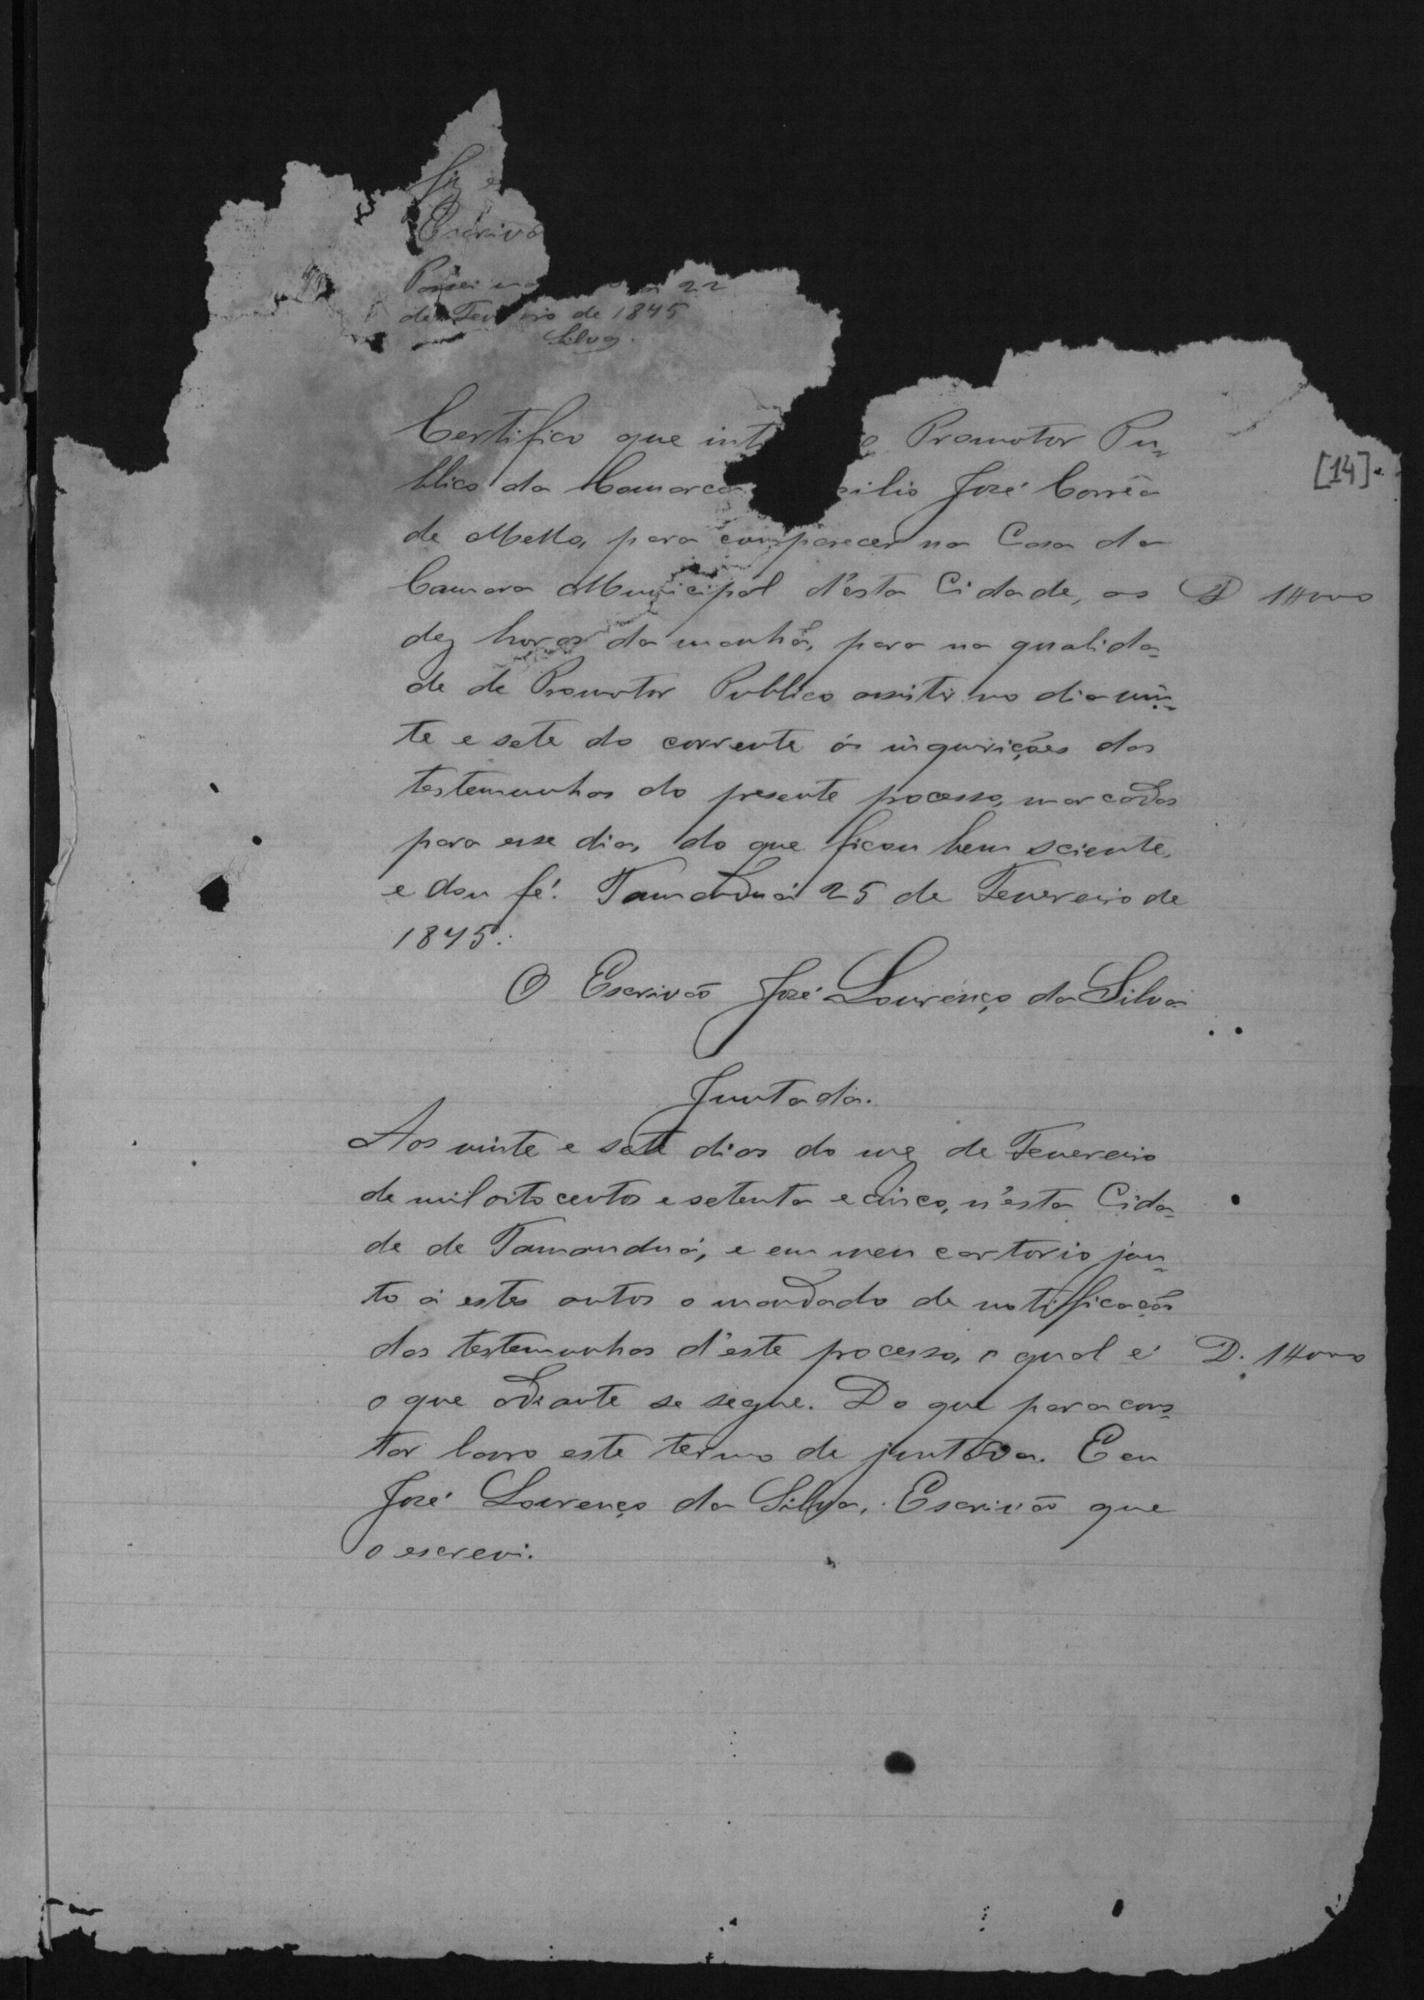 fiz e
Escrivã
Passei ma 22
de Fevereiro de 1875
Silva.
Certifico que int o Promotor Pu-
blico da Comarca silio José Corrêa
de Mello, para comparecer na Casa da
Camara Municipal d'esta Cidade, as
D 1#000
dez horas da manhã, para na qualida-
de de Promotor Publico assistir no dia vin-
te e sete do corrente ás inquirições das
testemunhas do presente processo, marcadas
para esse dia, do que ficou bem sciente,
e dou fé. Tamanduá 25 de Fevereiro de
1875.
O Escrivão José Lourenço da Silva
Juntada.
Aos vinte e sete dias do mez de Fevereiro
de mil oito centos e setenta e cinco, n'esta Cida-
de de Tamanduá, e em meu cartorio jun-
to á estes autos o mandado de notificação
das testemunhas d'este processo, o qual é
D. 1#000
o que adiante se segue. Do que para cons-
tar lavro este termo de juntada. E eu
José Lourenço da Silva, Escrivão que
o escrevi.
[14]